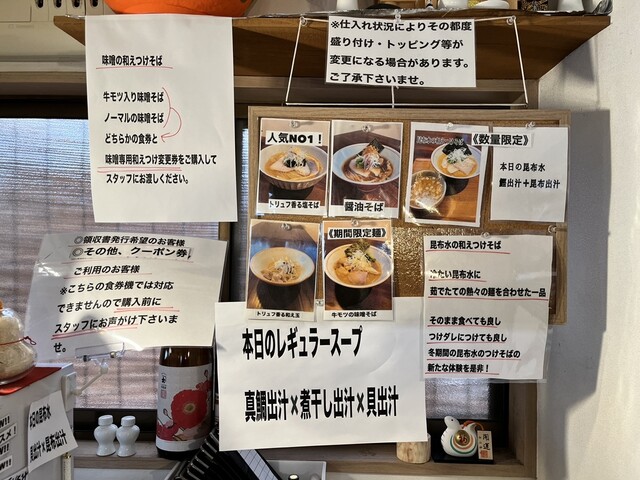 ※仕入れ状況によりその都度
盛り付け・トッピング等が
変更になる場合があります。
ご了承下さいませ。
味噌の和えつけそば
牛モツ入り味噌そば
ノーマルの味噌そば
どちらかの食券と
味噌専用和えつけ変更券をご購入して
スタッフにお渡しください。
人気NO1！
トリュフ香る塩そば
醤油そば
《数量限定》
昆布水の和えつけそば
本日の昆布水
鰹出汁＋昆布出汁
トリュフ香る和え玉
《期間限定麺》
牛モツの味噌そば
◎領収書発行希望のお客様
◎その他、クーポン券
ご利用のお客様
※こちらの食券機では対応
できませんので購入前に
スタッフにお声がけ下さいま
せ。
昆布水の和えつけそば
冷たい昆布水に
茹でたての熱々の麺を合わせた一品
そのまま食べても良し
つけダレにつけても良し
冬期間の昆布水のつけそばの
新たな体験を是非！
本日のレギュラースープ
真鯛出汁×煮干し出汁×貝出汁
本日の昆布水
昆布出汁
開運